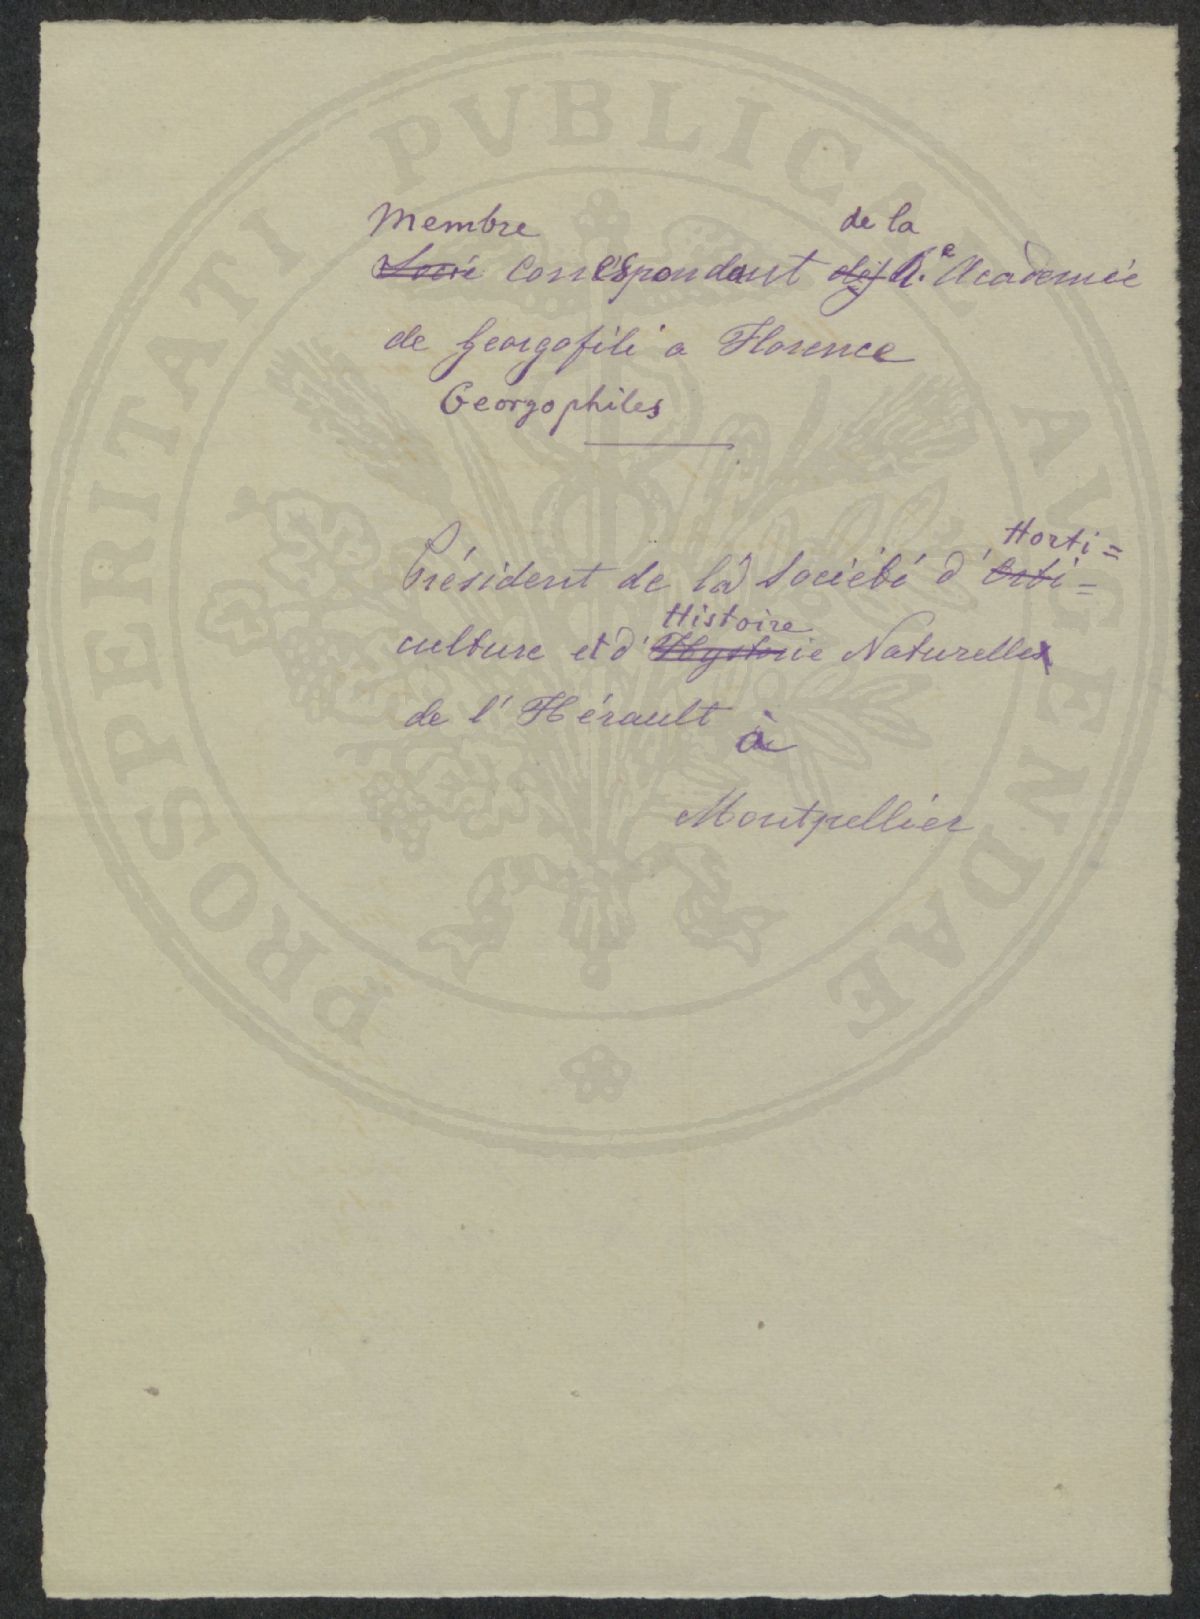 PROSPERITATI PVBLICAE AVGENDAE
Membre de la
Socié Correspondant R.e Academie
de Georgofili a Florence
Georgophiles
Horti=
Président de la Société d'Orti=
Histoire
culture et d'Hystorie Naturelles
de l'Hérault
à
Montpellier